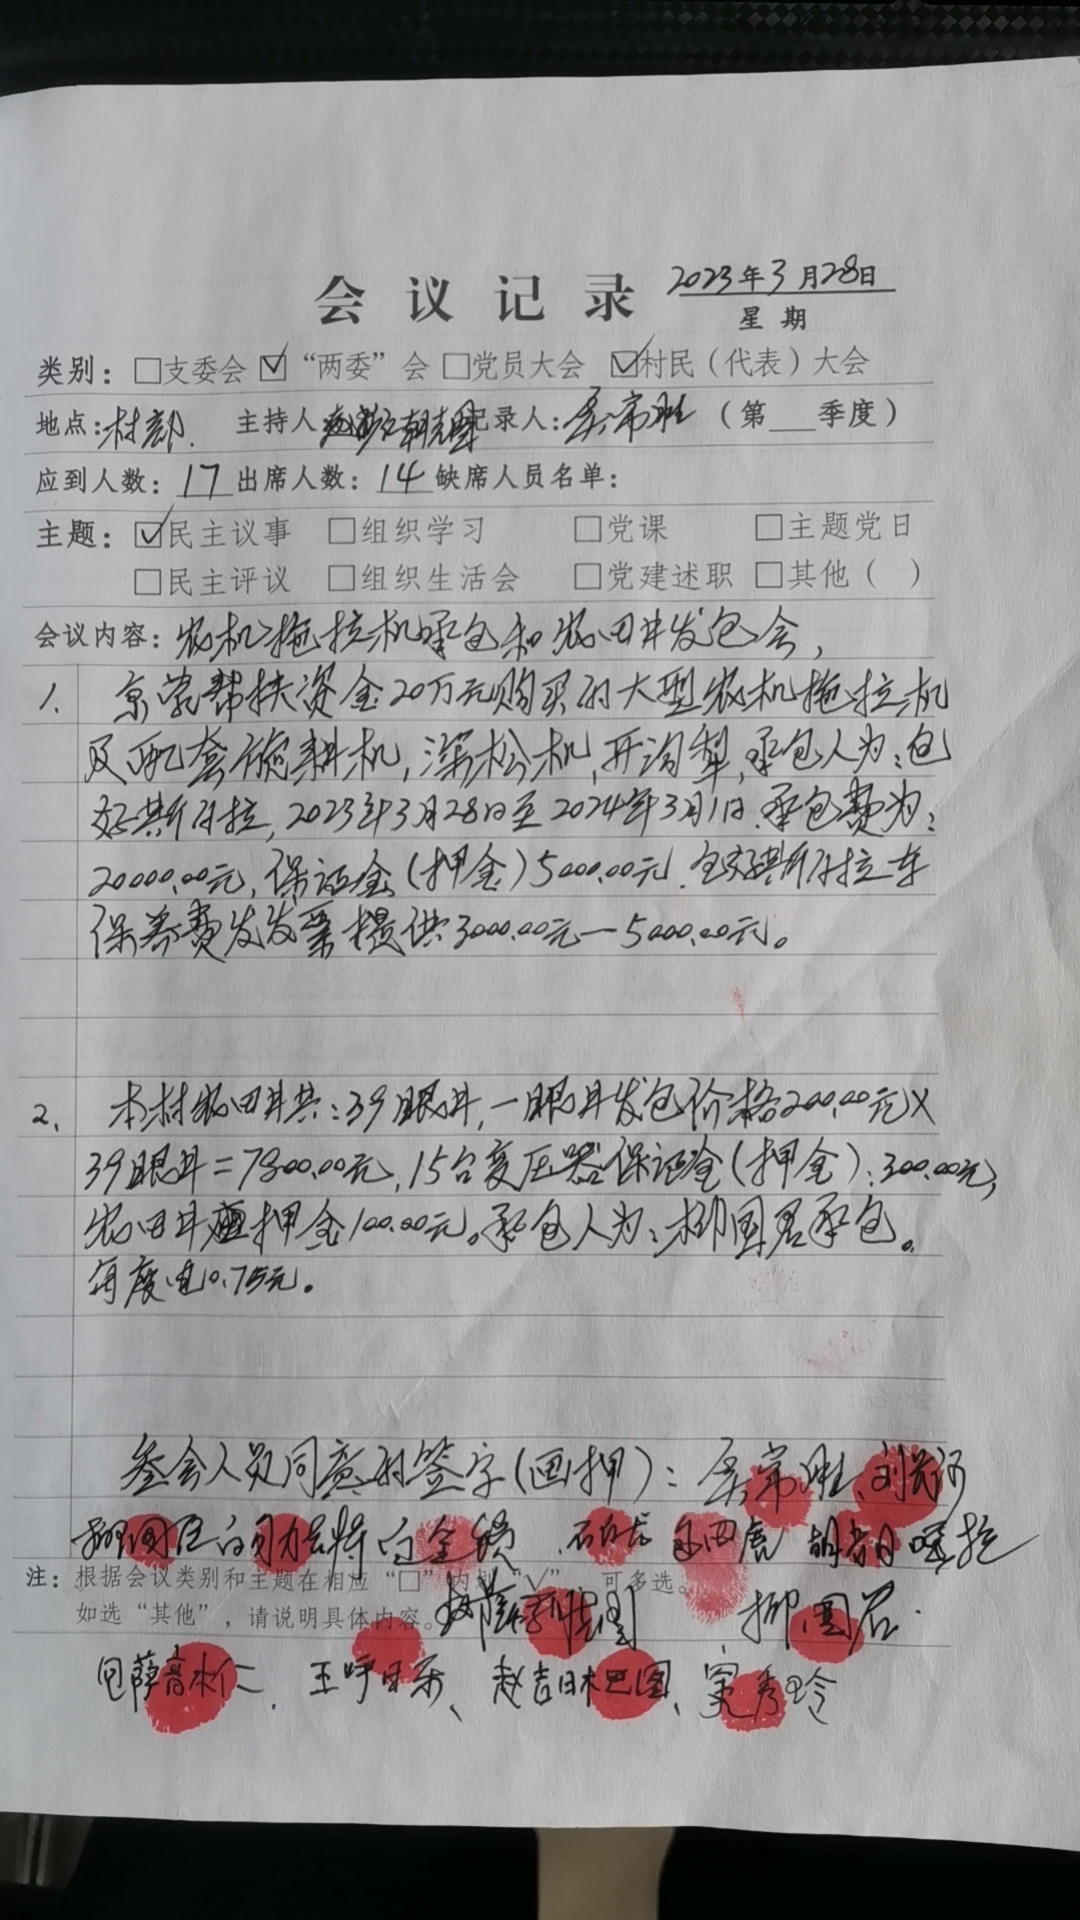 会议记录 2023年3月28日
星期
类别：□支委会 ☑“两委”会 □党员大会 ☑村民（代表）大会
地点：村部. 主持人 记录人：吴常胜 （第___季度）
应到人数：17 出席人数：14 缺席人员名单：
主题：☑民主议事 □组织学习 □党课 □主题党日
□民主评议 □组织生活会 □党建述职 □其他（ ）
会议内容：农机拖拉机承包和农田井发包会，
1. 京蒙帮扶资金20万元购买的大型农机拖拉机
及配套旋耕机，深松机，开沟犁，承包人为：包
好斯仔拉，2023年3月28日至2024年3月1日.承包费为：
20000.00元，保证金（押金）5000.00元.包好斯仔拉车
保养费发发票提供3000.00元—5000.00元。
2. 本村农田井共：39眼井，一眼井发包价格200.00元×
39眼井=7800.00元，15台变压器保证金（押金）：300.00元，
农田井押金100.00元。承包人为：柳国君承包。
每度电0.75元。
叁会人员同意的签字（画押）：吴常胜、刘
柳国 白 白金锁 石 虎 胡吉日 拉
注：根据会议类别和主题在相应“□”内划“√”，可多选。
如选“其他”，请说明具体内容。 柳国君.
包萨音木仁、王呼日乐、赵吉日木巴图、窦秀玲